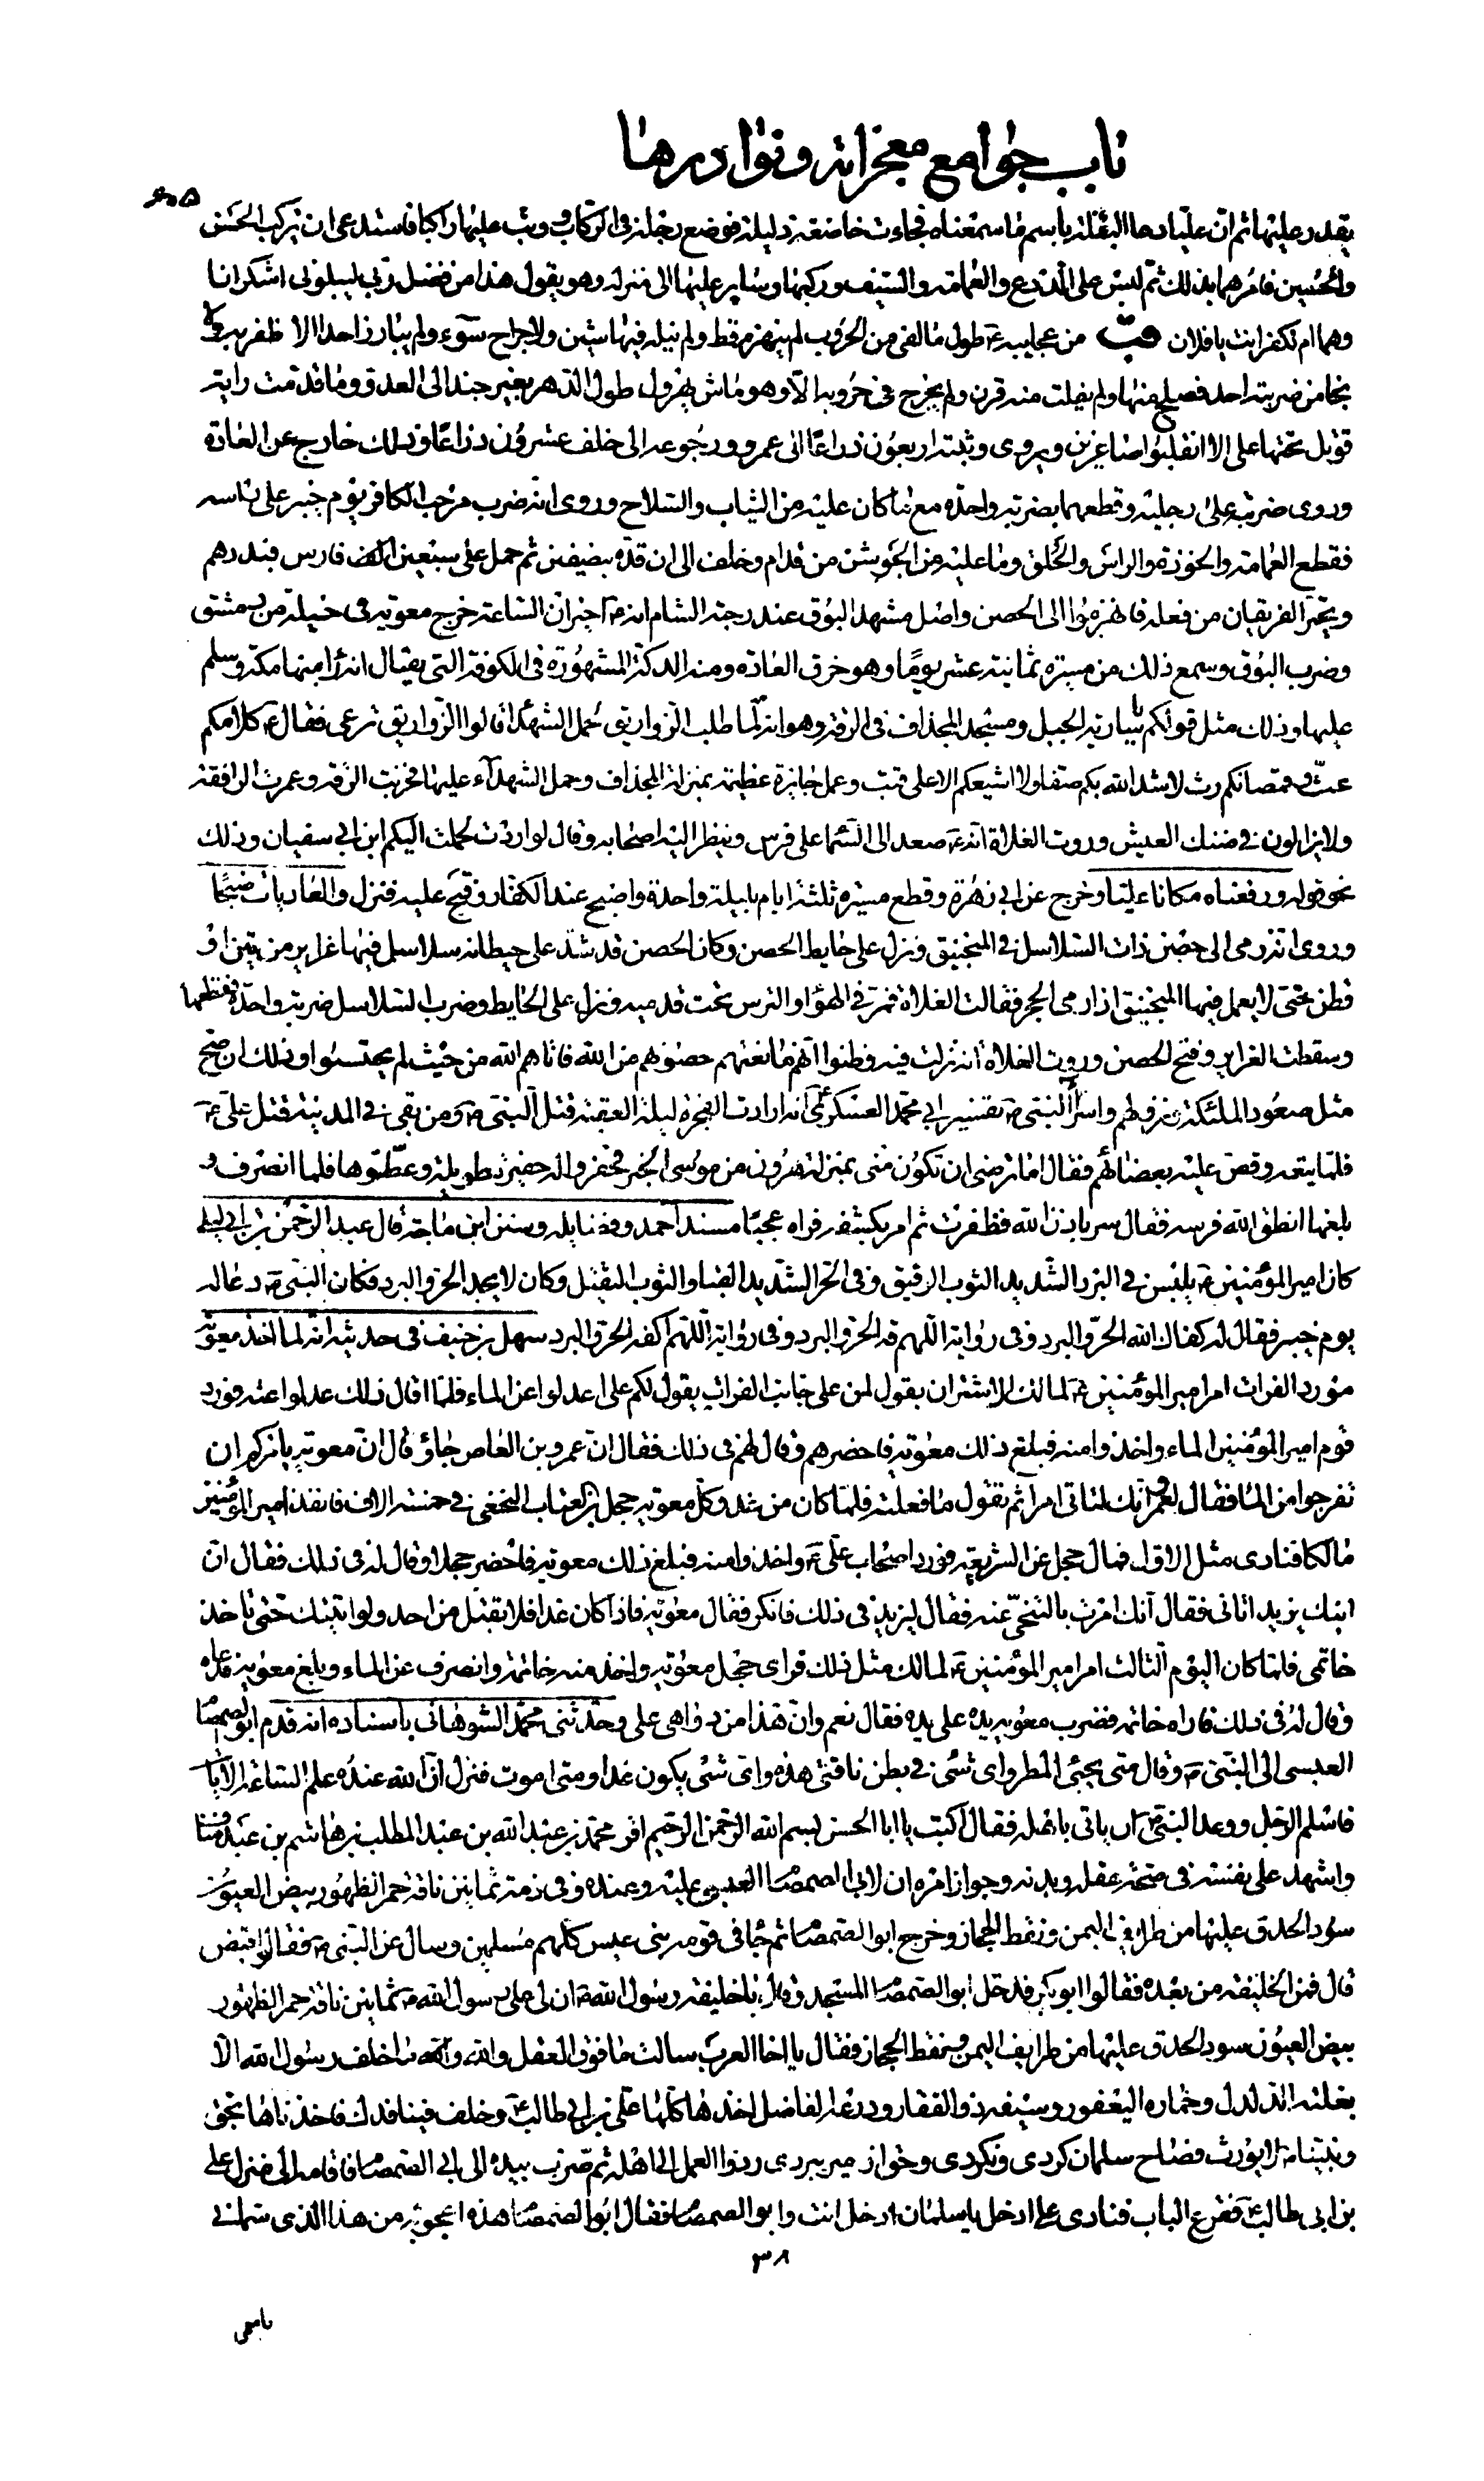 باب جوامع معجزاته و نوادرها
٦٠٥
يقدر عليها ثم ان عليا دعا البغلة باسم ما سمعناه فجاءت خاضعة ذليلة فوضع رجله في الركاب ووثب عليها راكبا فاستدعى ان يركب الحسن
والحسين فامرهما بذلك ثم لبس على الدرع والعمامة والسيف وركبها وساير عليها الى منزله وهو يقول هذا من فضل ربي ليبلوني اشكر انا
وهما ام تكفر انت يا فلان قب من عجايبه ع طول ما لقى من الحروب لم ينهزم قط ولم ينله فيها شين ولا جراح سوء ولم يبارز احدا الا ظفر به ولا
نجا من ضربته احد فصلح منها ولم يفلت منه قرن ولم يخرج في حروبه الا وهو ماش يهرول طول الدهر بغير جند الى العدو وما قدمت راية
قوتل تحتها على الا انقلبوا صاغرين ويروى وثبته اربعون ذراعا الى عمرو ورجوعه الى خلف عشرون ذراعا وذلك خارج عن العادة
وروى ضربته على رجليه وقطعهما بضربة واحدة مع ما كان عليه من الثياب والسلاح وروى انه ضرب مرحب الكافر يوم خيبر على راسه
فقطع العمامة والخوذة والراس والحلق وما عليه من الجوشن من قدام وخلف الى ان قده بنصفين ثم حمل على سبعين الف فارس فبددهم
وتحير الفريقان من فعله فانهزموا الى الحصن واصل مشهد البوق عند رحبة الشام انه ع اخبر ان الساعة خرج معوية في خيله من دمشق
وضرب البوق وسمع ذلك من مسيرة ثمانية عشر يوما وهو خرق العادة ومنه الدكة المشهورة في الكوفة التي يقال انه راى منها مكة وسلم
عليها وذلك مثل قولكم يا سارية الجبل ومسجد المجذاف في الرقة وهو انه لما طلب الزواريق لحمل الشهداء قالوا الزواريق ترعى فقال ع كلامكم
غث وقمصانكم رث لا شد الله بكم صفا ولا اشبعكم الا على قتب وعمل جايزة عظيمة بمنزلة المجذاف وحمل الشهداء عليها فخربت الرقة وعمرت الرافقة
ولا يزالون في ضنك العيش وروت الغلاة انه ع صعد الى السماء على فرس وينظر اليه اصحابه وقال لو اردت لحملت اليكم ابن ابي سفيان وذلك
نحو قوله ورفعناه مكانا عليا وخرج عن ابي زهرة وقطع مسيرة ثلثة ايام بليلة واحدة واصبح عند الكفار وفتح عليه فنزل والعاديات ضبحا
وروى انه رمى الى حصن ذات السلاسل في المنجنيق ونزل على حايط الحصن وكان الحصن قد شد على حيطانه سلاسل فيها غراير من تبن او
قطن حتى لا يعمل فيها المنجنيق اذا رمى الحجر فقالت الغلاة فمر في الهواء والترس تحت قدميه ونزل على الحايط وضرب السلاسل ضربة واحدة فقطعها
وسقطت الغراير وفتح الحصن وروت الغلاة انه نزلت فيه وظنوا انهم مانعتهم حصونهم من الله فاتاهم الله من حيث لم يحتسبوا وذلك ان صح
مثل صعود الملئكة ونزولهم واسراء النبي ص تفسير ابي محمد العسكري ع انه ارادت الفجرة ليلة العقبة قتل النبي ص ومن بقي في المدينة قتل علي ع
فلما تبعه وقص عليه بغضاءهم فقال اما ترضى ان تكون مني بمنزلة هرون من موسى الخبر فحفروا له حفيرة طويلة وغطوها فلما انصرف و
بلغها انطق الله فرسه فقال سر باذن الله فطفرت ثم امر بكشفه فراه عجبا مسند احمد وفضايله وسنن ابن ماجة قال عبد الرحمن بن ابي ليلى
كان امير المؤمنين ع يلبس في البرد الشديد الثوب الرقيق وفي الحر الشديد القباء والثوب الثقيل وكان لا يجد الحر والبرد فكان النبي ص دعا له
يوم خيبر فقال له كفاك الله الحر والبرد وفي رواية اللهم قه الحر والبرد وفي رواية اللهم اكفه الحر والبرد سهل بن حنيف في حديثه انه لما اخذ معوية
مورد الفرات امر امير المؤمنين ع لمالك الاشتر ان يقول لمن على جانب الفرات يقول لكم على اعدلوا عن الماء فلما قال ذلك عدلوا عنه فورد
قوم امير المؤمنين الماء واخذوا منه فبلغ ذلك معوية فاحضرهم وقال لهم في ذلك فقال ان عمرو بن العاص جاء وقال ان معوية يامركم ان
تفرجوا من الماء فقال لعمرو انك لتاتي امرا ثم تقول ما فعلته فلما كان من غد وكل معوية حجل بن العتاب النخعي في خمسة الاف فانفذ امير المؤمنين
مالكا فنادى مثل الاول فمال حجل عن الشريعة فورد اصحاب علي ع واخذوا منه فبلغ ذلك معوية فاحضر حجلا وقال له في ذلك فقال ان
ابنك يزيد اتاني فقال انك امرت بالتنحي عنه فقال ليزيد في ذلك فانكر فقال معوية فاذا كان غدا فلا تقبل من احد ولو اتيتك حتى تاخذ
خاتمي فلما كان اليوم الثالث امر امير المؤمنين ع لمالك مثل ذلك فراى حجل معوية واخذ منه خاتمه وانصرف عن الماء وبلغ معوية فدعاه
وقال له في ذلك فاراه خاتمه فضرب معوية يده على يده فقال نعم وان هذا من دواهي علي وحدثني محمد الشوهاني باسناده انه قدم ابو الصمصام
العبسي الى النبي ص وقال متى يجيء المطر واي شيء في بطن ناقتي هذه واي شيء يكون غدا ومتى اموت فنزل ان الله عنده علم الساعة الايات
فاسلم الرجل ووعد النبي ص ان ياتي باهله فقال اكتب يا ابا الحسن بسم الله الرحمن الرحيم اقر محمد بن عبد الله بن عبد المطلب بن هاشم بن عبد مناف
واشهد على نفسه في صحة عقله وبدنه وجواز امره ان لابي الصمصام العبسي عليه وعنده وفي ذمته ثمانين ناقة حمر الظهور بيض العيون
سود الحدق عليها من طرايف اليمن ونقط الحجاز وخرج ابو الصمصام ثم جاء في قومه بني عبس كلهم مسلمين وسال عن النبي ص فقالوا قبض
قال فمن الخليفة من بعده فقالوا ابو بكر فدخل ابو الصمصام المسجد وقال يا خليفة رسول الله ص ان لي على رسول الله ص ثمانين ناقة حمر الظهور
بيض العيون سود الحدق عليها من طرايف اليمن ونقط الحجاز فقال يا اخا العرب سالت ما فوق العقل والله ما خلف رسول الله الا
بغلته الدلدل وحماره اليعفور وسيفه ذو الفقار ودرعه الفاضل اخذها كلها علي بن ابي طالب ع وخلف فينا فدك فاخذناها بحق
ونبينا ص لا يورث فصاح سلمان كردى ونكردى وحق از مير ببردى ردوا العمل الى اهله ثم ضرب بيده الى ابي الصمصام فاقامه الى منزل علي
بن ابي طالب ع فقرع الباب فنادى علي ادخل يا سلمان ادخل انت وابو الصمصام فقال ابو الصمصام هذه اعجوبة من هذا الذي سماني
٣٨
باسمي